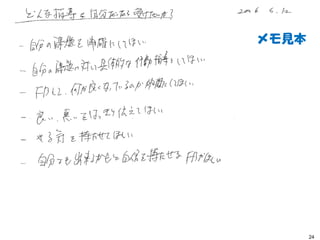 どんな指導を自分だったら受けたいか？ 2016 6.12
メモ見本
- 自分の課題を明確にしてほしい
- 自分の課題に対し具体的な行動指導をしてほしい
- FBして、何が良くなっているのか明確にしてほしい
- 良い、悪いをはっきり伝えてほしい
- やる気を持たせてほしい
- 自分でも出来るかもと自信を持たせるFBがほしい
24